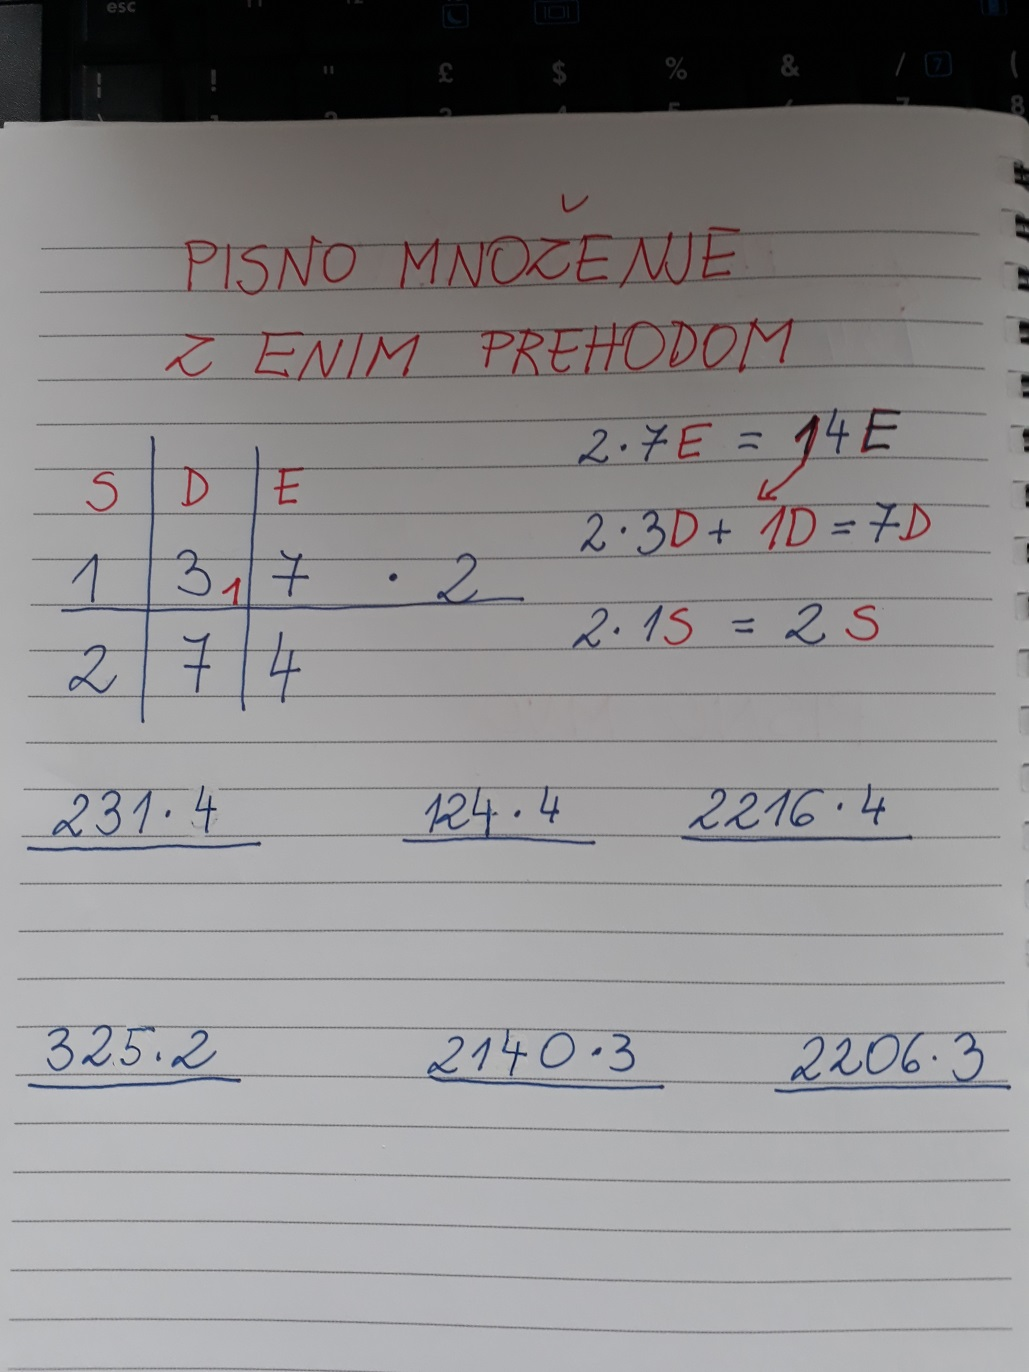 esc
! " £ $ % & / ? (
8
PISNO MNOŽENJE
Z ENIM PREHODOM
S D E
1 3 1 7 · 2
2 7 4
2·7E = 14E
2·3D + 1D = 7D
2·1S = 2S
231·4 124·4 2216·4
325·2 2140·3 2206·3